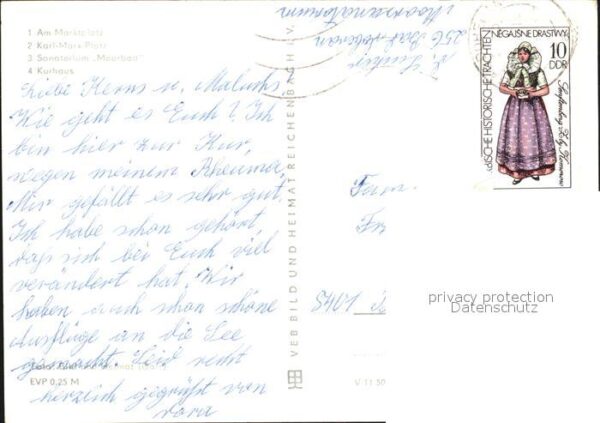 1 Am Marktplatz
2 Karl-Marx-Platz
3 Sanatorium „Moorbad"
4 Kurhaus
Liebe Kerns u. Maluchs
Wie geht es Euch? Ich
bin hier zur Kur,
wegen meinem Rheuma.
Mir gefällt es sehr gut,
Ich habe schon gehört,
daß sich bei Euch viel
verändert hat. Wir
haben auch schon schöne
Ausflüge an die See
gemacht. Seid recht
herzlich gegrüßt von
Dora
EVP 0,25 M
VEB BILD UND HEIMAT REICHENBACH I. V.
V 11 50
256 Bad Doberan
Moorsanatorium
Fam.
Fr
5401
SORBISCHE HISTORISCHE TRACHTEN
NĚGAJŠNE DRASTWY
10
DDR
privacy protection
Datenschutz